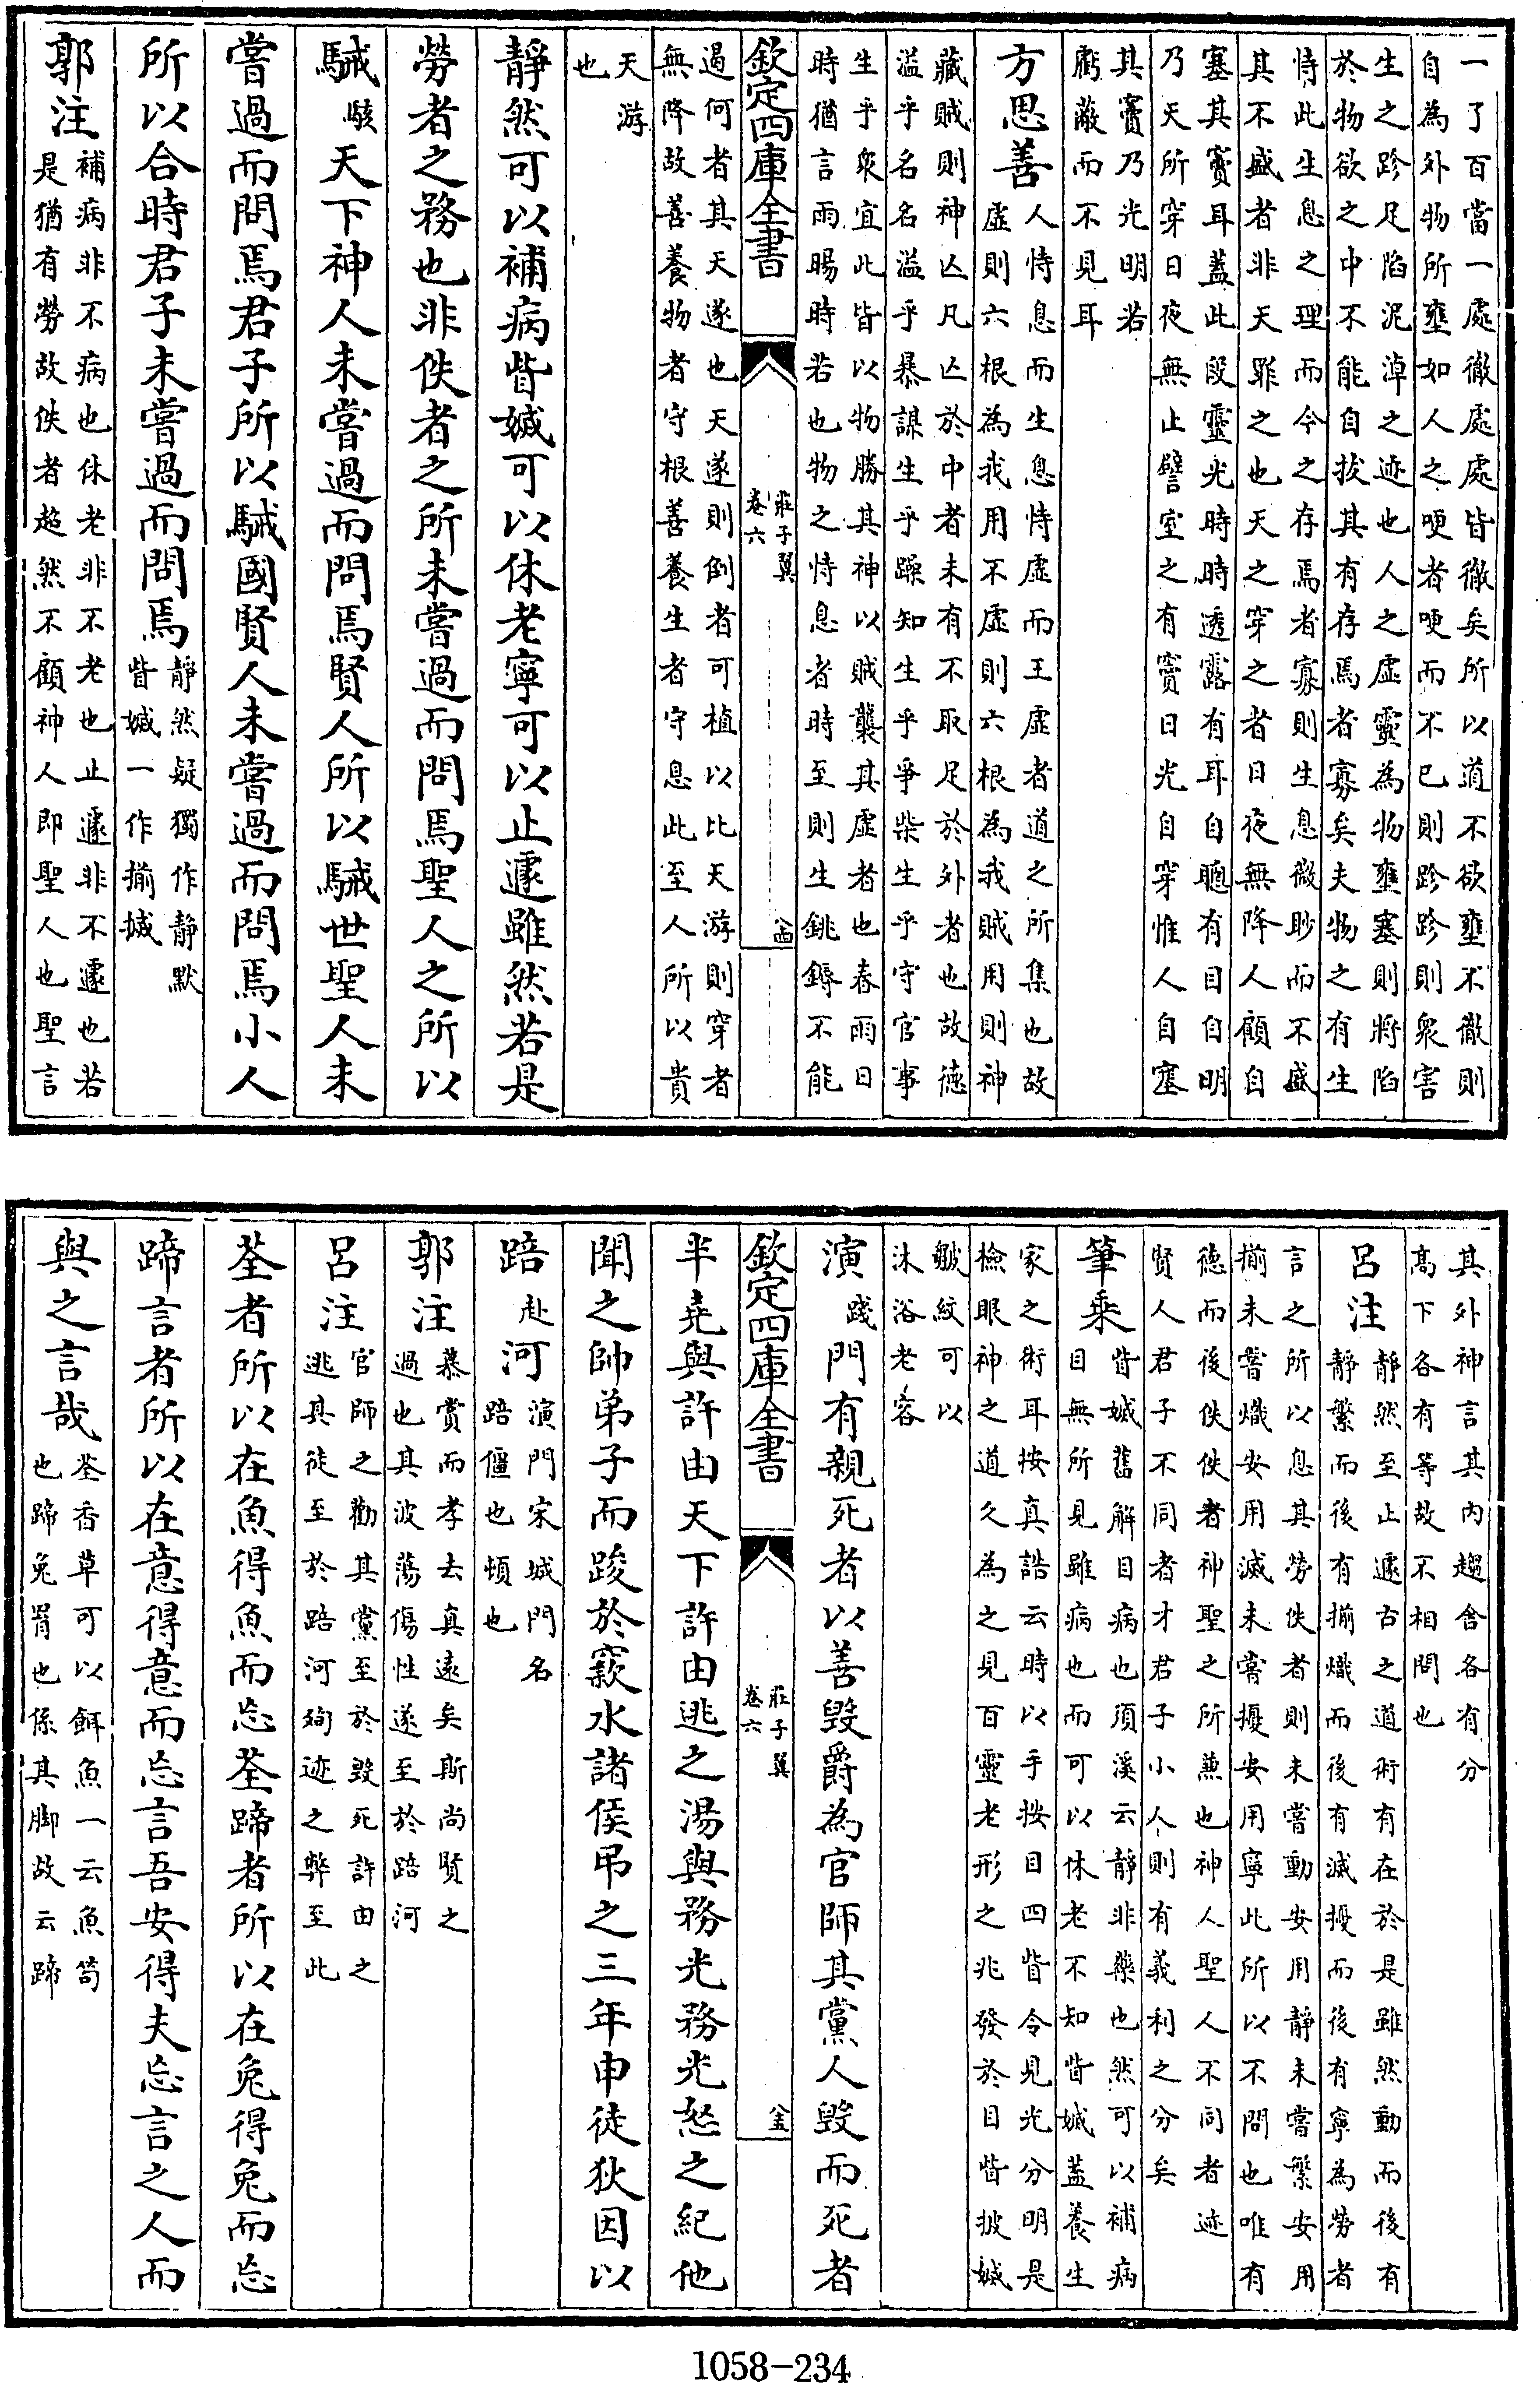 一了百當一處徹處處皆徹矣所以道不欲壅不徹則
自為外物所壅如人之哽者哽而不已則跈跈則衆害
生之跈足陷泥淖之迹也人之虛靈為物壅塞則將陷
於物欲之中不能自拔其有存焉者寡矣夫物之有生
恃此生息之理而今之存焉者寡則生息微眇而不盛
其不盛者非天罪之也天之穿之者日夜無降人顧自
塞其竇耳蓋此段靈光時時透露有耳自聰有目自明
乃天所穿日夜無止譬室之有竇日光自穿惟人自塞
其竇乃光明若
虧蔽而不見耳
方思善
人恃息而生息恃虛而王虛者道之所集也故
虛則六根為我用不虛則六根為我賊用則神
藏賊則神亾凡亾於中者未有不取足於外者也故德
溢乎名名溢乎暴謀生乎躁知生乎爭柴生乎守官事
生乎衆宜此皆以物勝其神以賊襲其虛者也春雨日
時猶言雨暘時若也物之恃息者時至則生銚鎒不能
欽定四庫全書
莊子翼
卷六
八四
遏何者其天遂也天遂則倒者可植以比天游則穿者
無降故善養物者守根善養生者守息此至人所以貴
天游
也
靜然可以補病眥㓕可以休老寧可以止遽雖然若是
勞者之務也非佚者之所未嘗過而問焉聖人之所以
駴駭天下神人未嘗過而問焉賢人所以駴世聖人未
嘗過而問焉君子所以駴國賢人未嘗過而問焉小人
所以合時君子未嘗過而問焉
靜然疑獨作靜默
眥㓕一作揃搣
郭注
補病非不病也休老非不老也止遽非不遽也若
是猶有勞故佚者超然不顧神人即聖人也聖言
其外神言其內趨舍各有分
高下各有等故不相問也
呂注
靜然至止遽古之道術有在於是雖然動而後有
靜繁而後有揃㓕而後有滅擾而後有寧為勞者
言之所以息其勞佚者則未嘗動安用靜未嘗繁安用
揃未嘗㓕安用滅未嘗擾安用寧此所以不問也唯有
德而後佚佚者神聖之所兼也神人聖人不同者迹
賢人君子不同者才君子小人則有義利之分矣
筆乘
眥㓕舊解目病也須溪云靜非藥也然可以補病
目無所見雖病也而可以休老不知眥㓕蓋養生
家之術耳按真誥云時以手按目四眥令見光分明是
檢眼神之道久為之見百靈老形之兆發於目眥披㓕
皺紋可以
沐浴老容
演踐門有親死者以善毀爵為官師其黨人毀而死者
欽定四庫全書
莊子翼
卷六
八五
半堯與許由天下許由逃之湯與務光務光怒之紀他
聞之帥弟子而踆於窾水諸侯吊之三年申徒狄因以
踣赴河
演門宋城門名
踣僵也頓也
郭注
慕賞而孝去真遠矣斯尚賢之
過也其波蕩傷性遂至於踣河
呂注
官師之勸其黨至於毀死許由之
逃其徒至於踣河殉迹之弊至此
荃者所以在魚得魚而忘荃蹄者所以在兔得兔而忘
蹄言者所以在意得意而忘言吾安得夫忘言之人而
與之言哉
荃香草可以餌魚一云魚笱
也蹄兔罥也係其脚故云蹄
1058-234